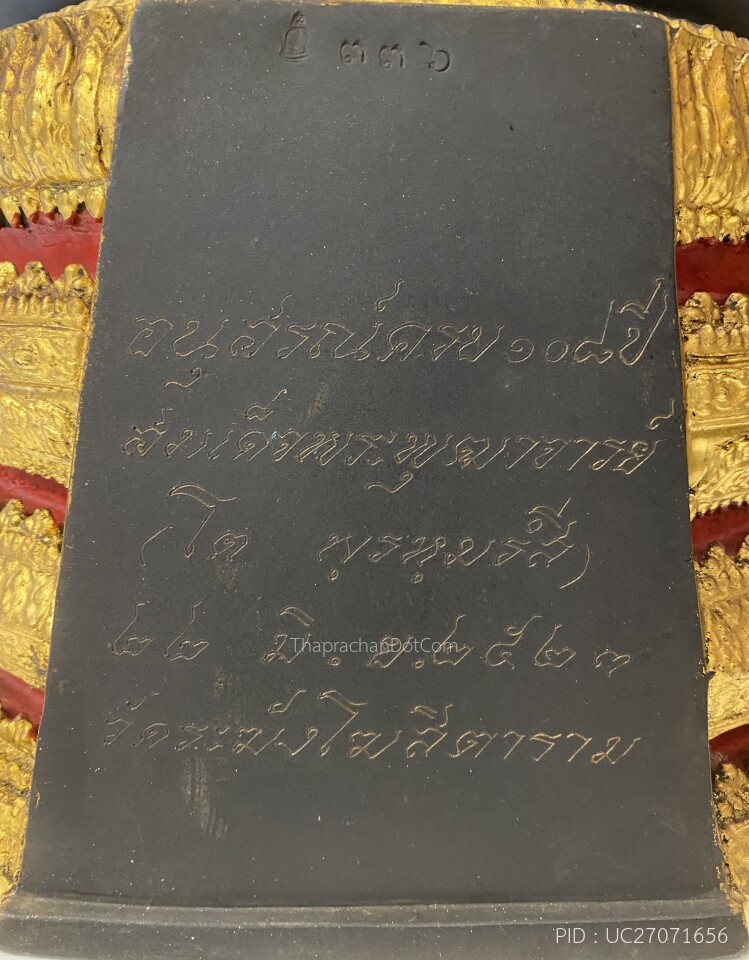 ๓๓๖
อนุสรณ์ครบ ๑๐๘ ปี
สมเด็จพระพุฒาจารย์
(โต พฺรหฺมรํสี)
๒๒ มิ.ย. ๒๕๒๓
วัดระฆังโฆสิตาราม
ThaprachanDotCom
PID : UC27071656